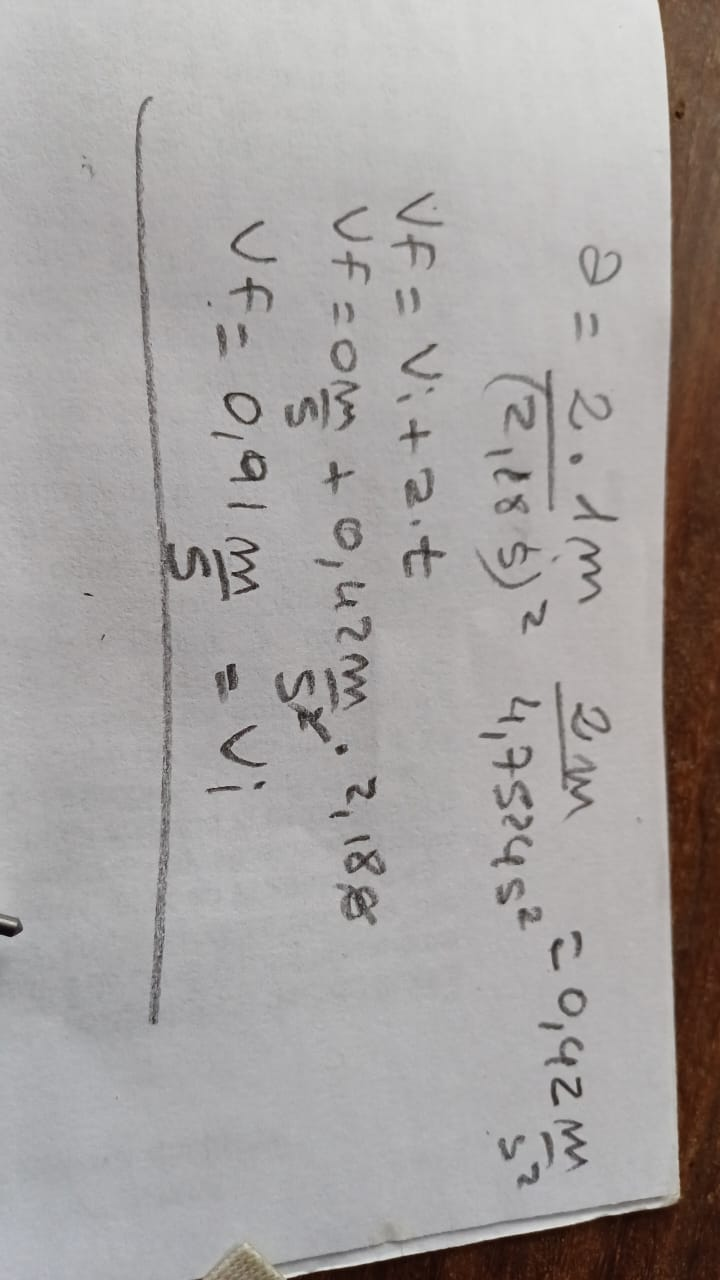 a = 2 . 1m / (2,18 s)² 2m / 4,7524s² = 0,42 m/s²
Vf = Vi + a.t
Vf = 0 m/s + 0,42 m/s² . 2,18s
Vf = 0,91 m/s = Vi